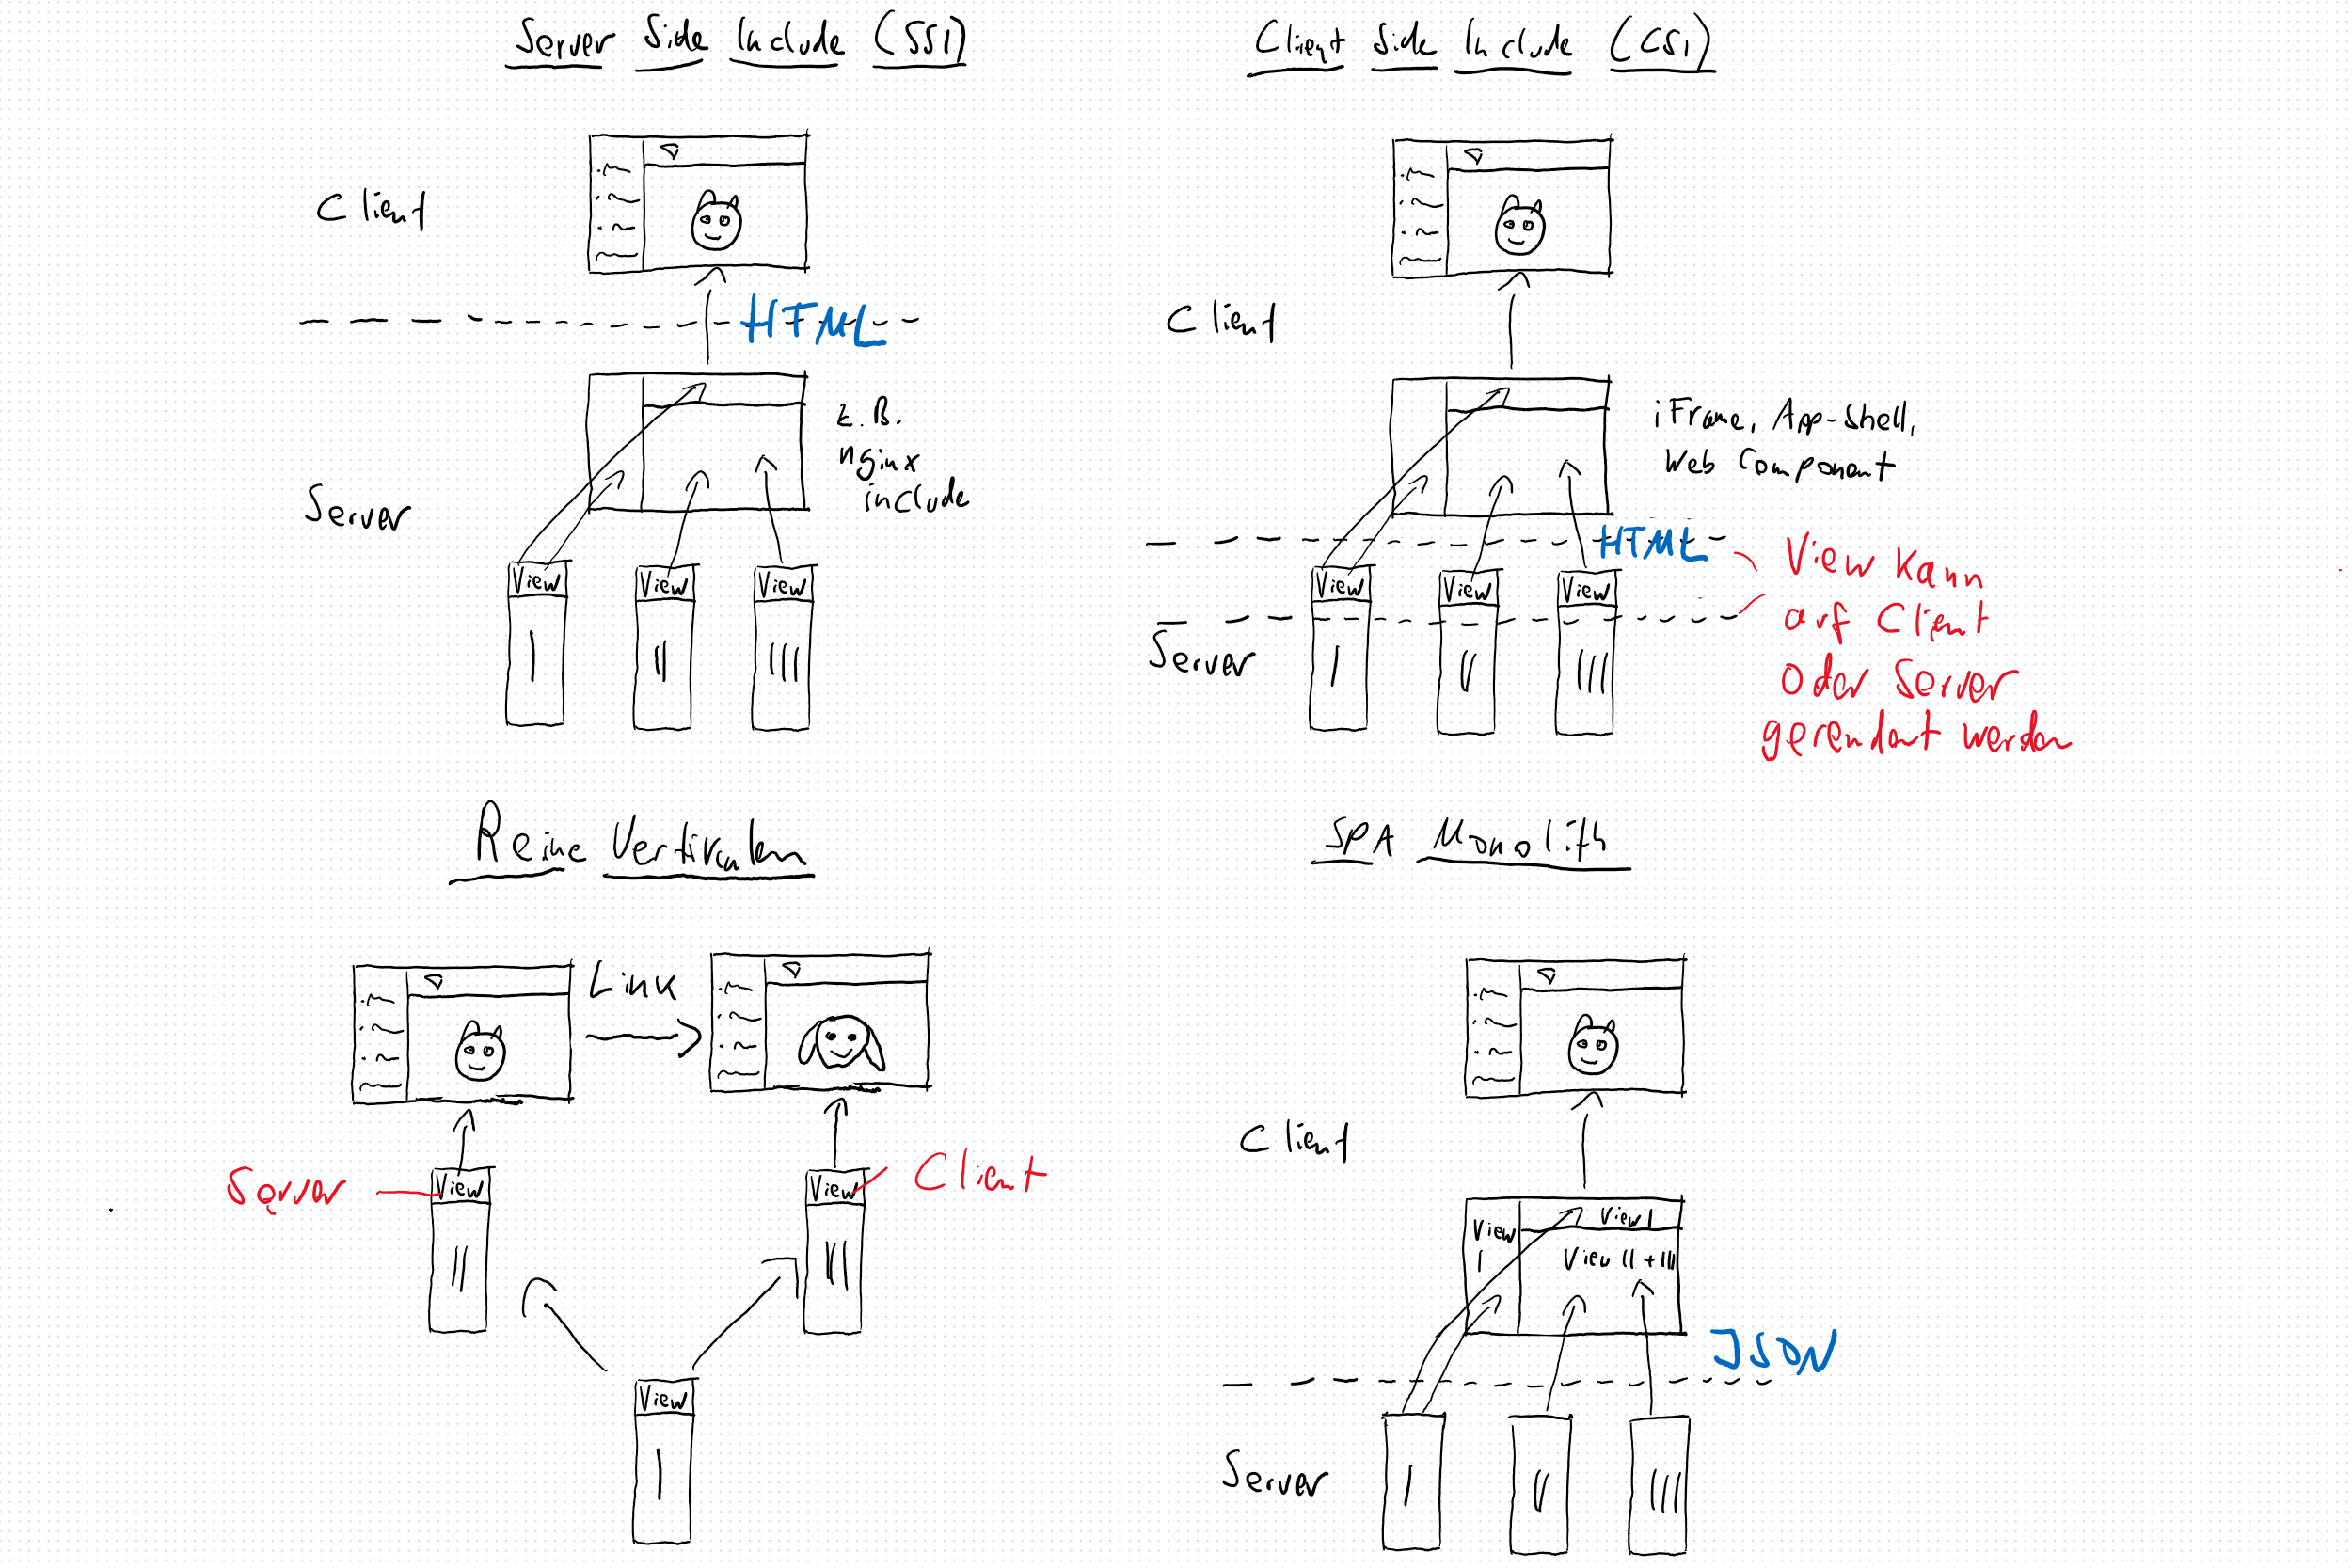 Server Side Include (SSI)
Client
HTML
z.B.
nginx
include
Server
View
View
View
I
II
III
Client Side Include (CSI)
Client
iFrame, App-Shell,
Web Component
HTML
View kann
auf Client
oder Server
gerendert werden
View
View
View
Server
I
II
III
Reine Vertikalen
Link
Server
View
View
Client
II
III
View
I
SPA Monolith
Client
View
I
View I
View II + III
JSON
Server
I
II
III